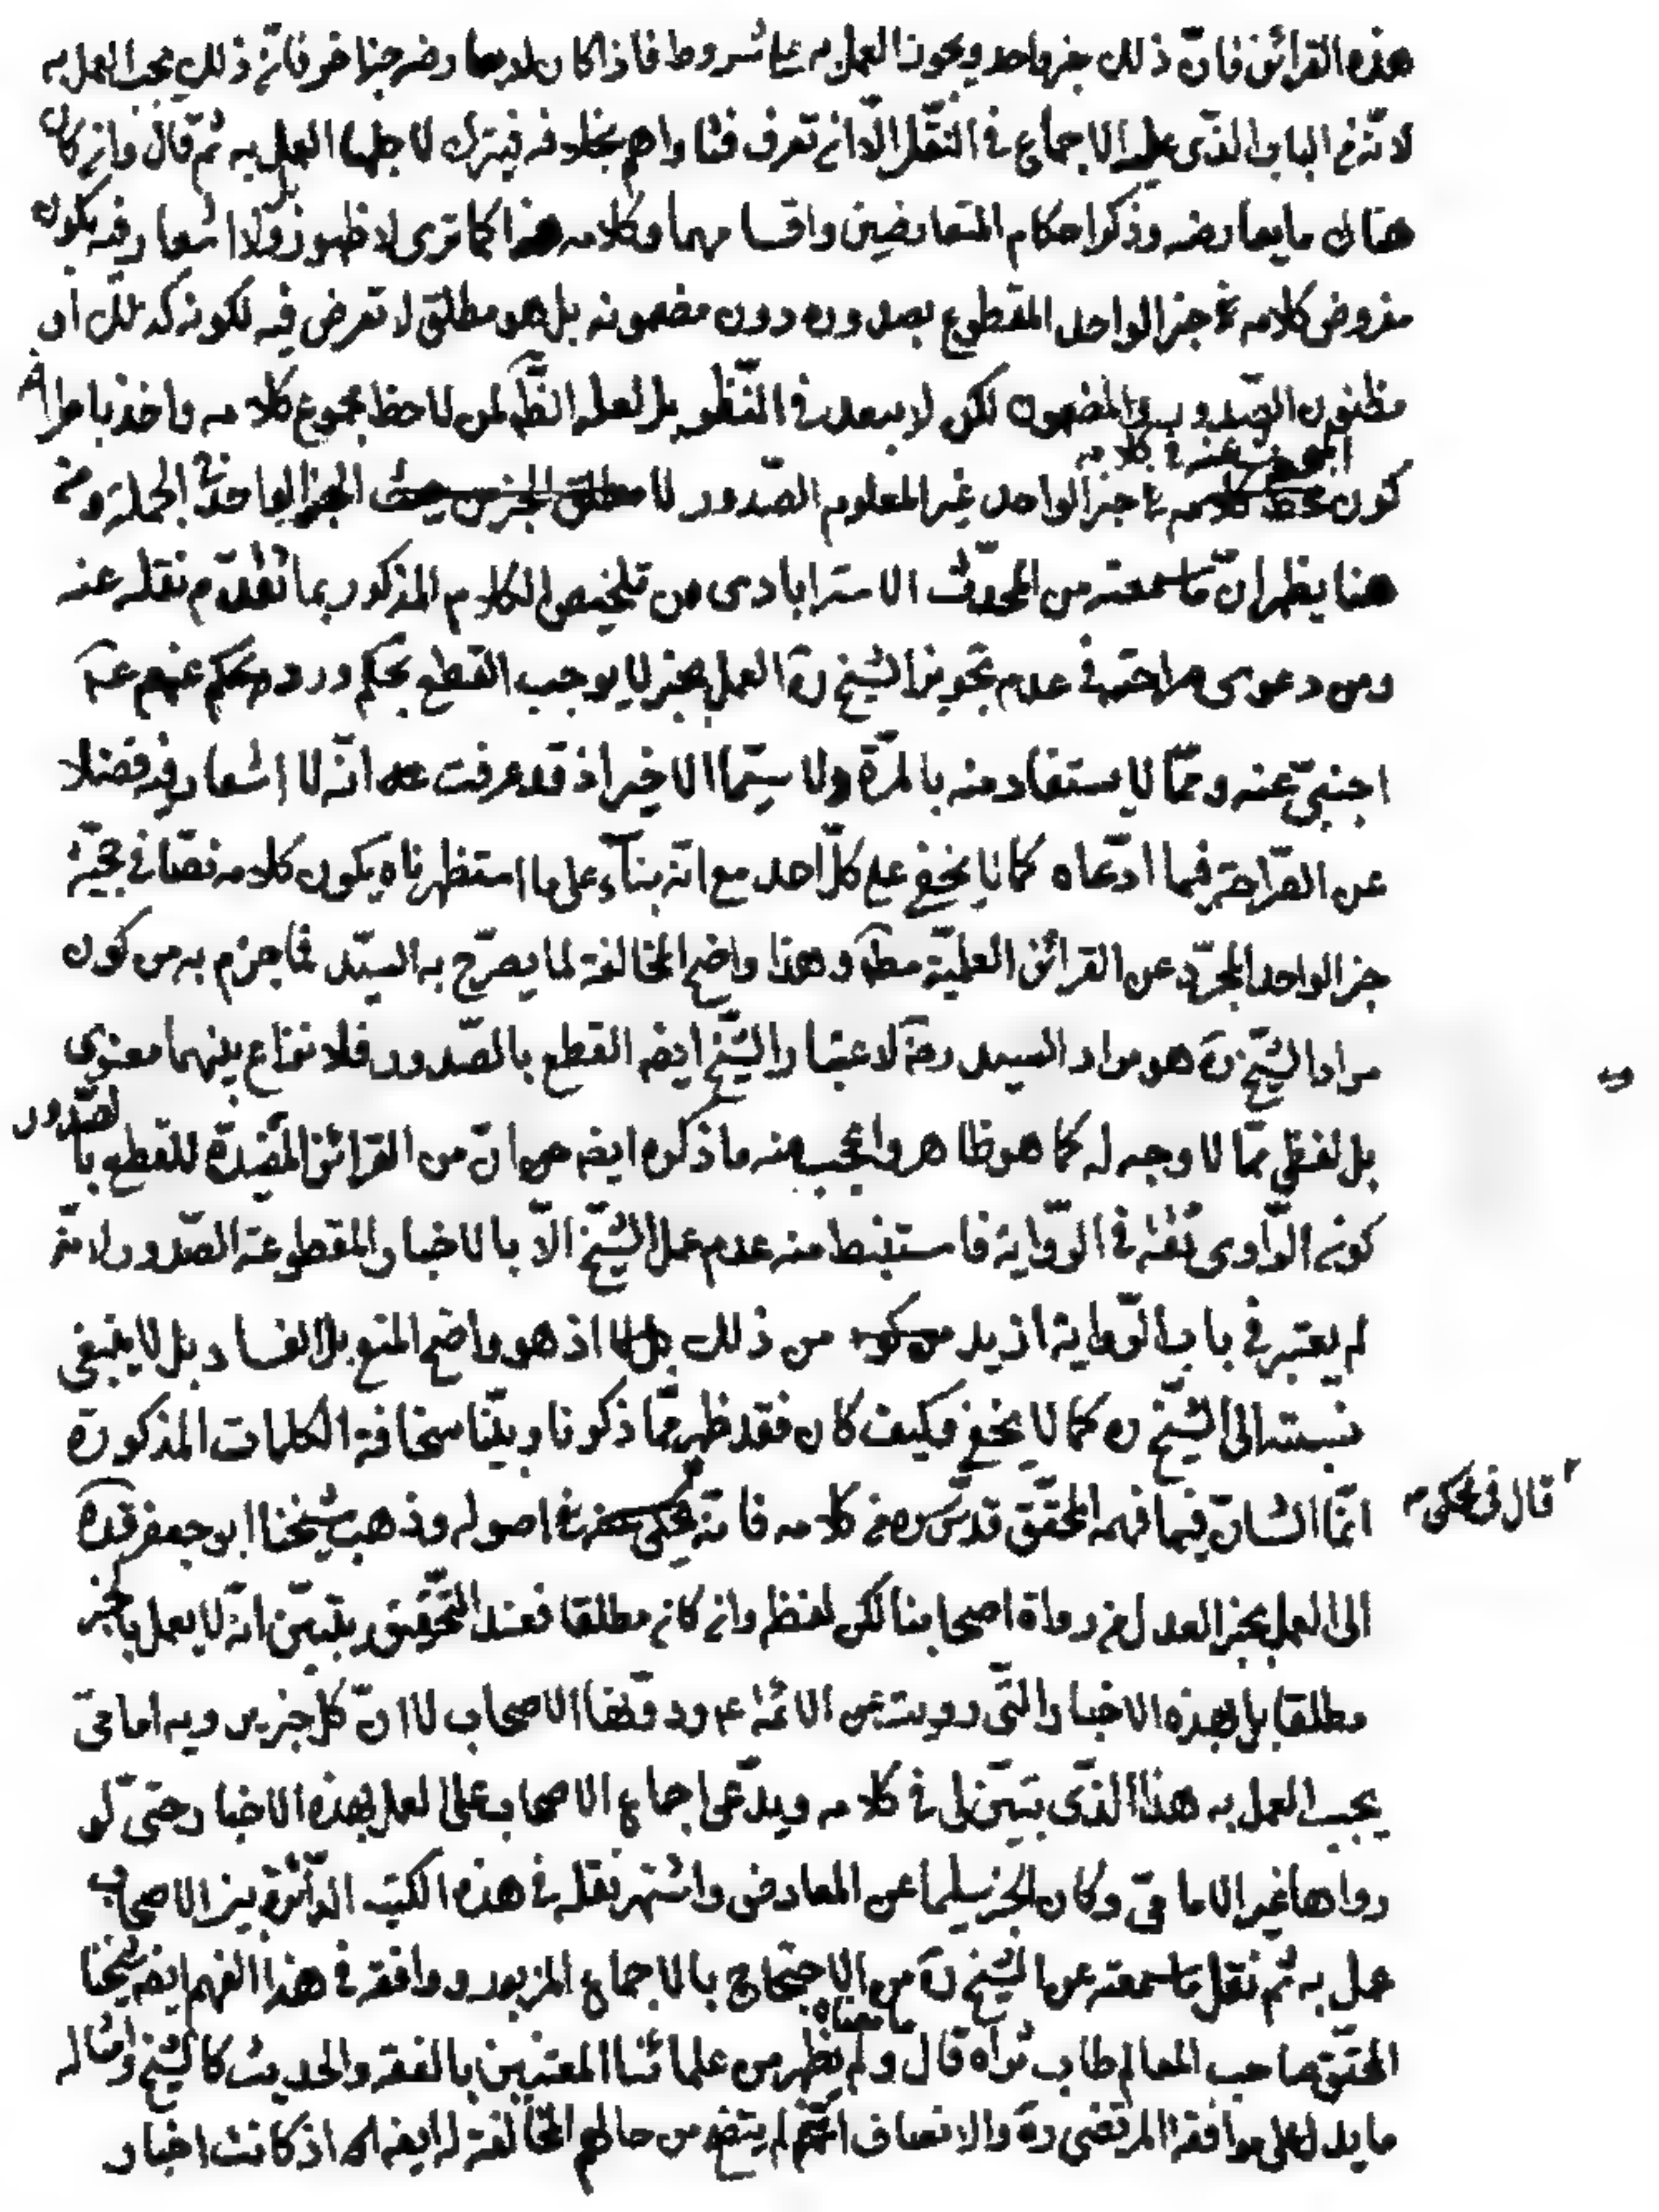 هذه القرائن فانّ ذلك خبر واحد ويجوز العمل به على شروط فاذا كان لا يعارضه خبر اخر فانّ ذلك يجب العمل به
لانّه من الباب الذّي عليه الاجماع في النّقل الّا ان تعرف فتاواهم بخلافه فيترك لاجلها العمل به ثم قال وان كان
هناك ما يعارضه وذكر احكام المتعارضين واقسامهما وكلامه هذا كما ترى لا ظهور بل ولا اشعار فيه بكون
مفروض كلامه في خبر الواحد المقطوع بصدوره دون مضمونه بل هو مطلق لا تعرض فيه لكونه كذلك او
مظنون الصّدور والمضمون لكن لا يبعد في النّظر بل لعله الظّ لمن لاحظ مجموع كلامه واخذ باطرافه
المبحوث عنه في كلامه
كون خبر الواحد غير المعلوم الصّدور لا مطلق الخبر من حيث الخبر الواحد في الجملة ومن
هنا يظهر انّ ما سمعته من المحدّث الاسترابادى من تلخيص الكلام المذكور بما تقدّم نقله عنه
ومن دعوى صراحته في عدم تجويز الشّيخ ره العمل بخبر لا يوجب القطع بحكم ورود حكم عنهم ع
اجنبيّ عنه وممّا لا يستفاد منه بالمرّة ولا سيّما الاخير اذ قد عرفت انّه لا اشعار فيه فضلا
عن الصّراحة فيما ادّعاه كما لا يخفى على كلّ احد مع انّه بناءً على ما استظهرناه يكون كلامه نصّا في حجيّة
خبر الواحد المجرّد عن القرائن العلميّة مط وهذا واضح المخالفة لما يصرّح به السيّد فما جزم به من كون
مراد الشّيخ ره هو مراد السيد ره لاعتبار الشّيخ ايضه القطع بالصّدور فلا نزاع بينهما معنوى
بل لفظي ممّا لا وجه له كما هو ظاهر واعجب منه ما ذكره ايضه من انّ من القرائن المفيدة للقطع بالصّدور
كون الرّاوى ثقة في الرّواية فاستنبط منه عدم عمل الشّيخ الّا بالاخبار المقطوعة الصّدور لانّه
لم يعتبر في باب الرّواية ازيد من ذلك اذ هو واضح المنع بل الفساد بل لا ينبغى
نسبته الى الشّيخ ره كما لا يخفى وكيف كان فقد ظهر ممّا ذكرنا وبيّنا سخافة الكلمات المذكورة
انّما الشان فيما فهمه المحقّق قدّس ره من كلامه فانّه قال في محكى اصوله وذهب شيخنا ابو جعفر قده
الى العمل بخبر العدل من رواة اصحابنا لكن لفظه وان كان مطلقا فعند التّحقيق يتبيّن انّه لا يعمل بالخبر
مطلقا بل بهذه الاخبار الّتى رويت عن الائمّة ع ودوّنها الاصحاب لا انّ كل خبر يرويه امامىّ
يجب العمل به هذا الذّى تبيّن لى في كلامه ويدّعى اجماع الاصحاب على العمل بهذه الاخبار حتى لو
رواها غير الامامىّ وكان الخبر سليما عن المعارض واشتهر نقله في هذه الكتب الدّائرة بين الاصحاب
عمل به ثم نقل ما سمعته عن الشّيخ ره من الاحتجاج بالاجماع المزبور ووافقه في هذا الفهم ايضه شيخنا
المحقّق صاحب المعالم طاب ثراه قال ما معناه ولم يظهر من علمائنا المعتنين بالفقه والحديث كالشّيخ وامثاله
ما يدل على موافقة المرتضى ره والانصاف انّه لم يتضح من حالهم المخالفة له ايضه اذ كانت اخبار